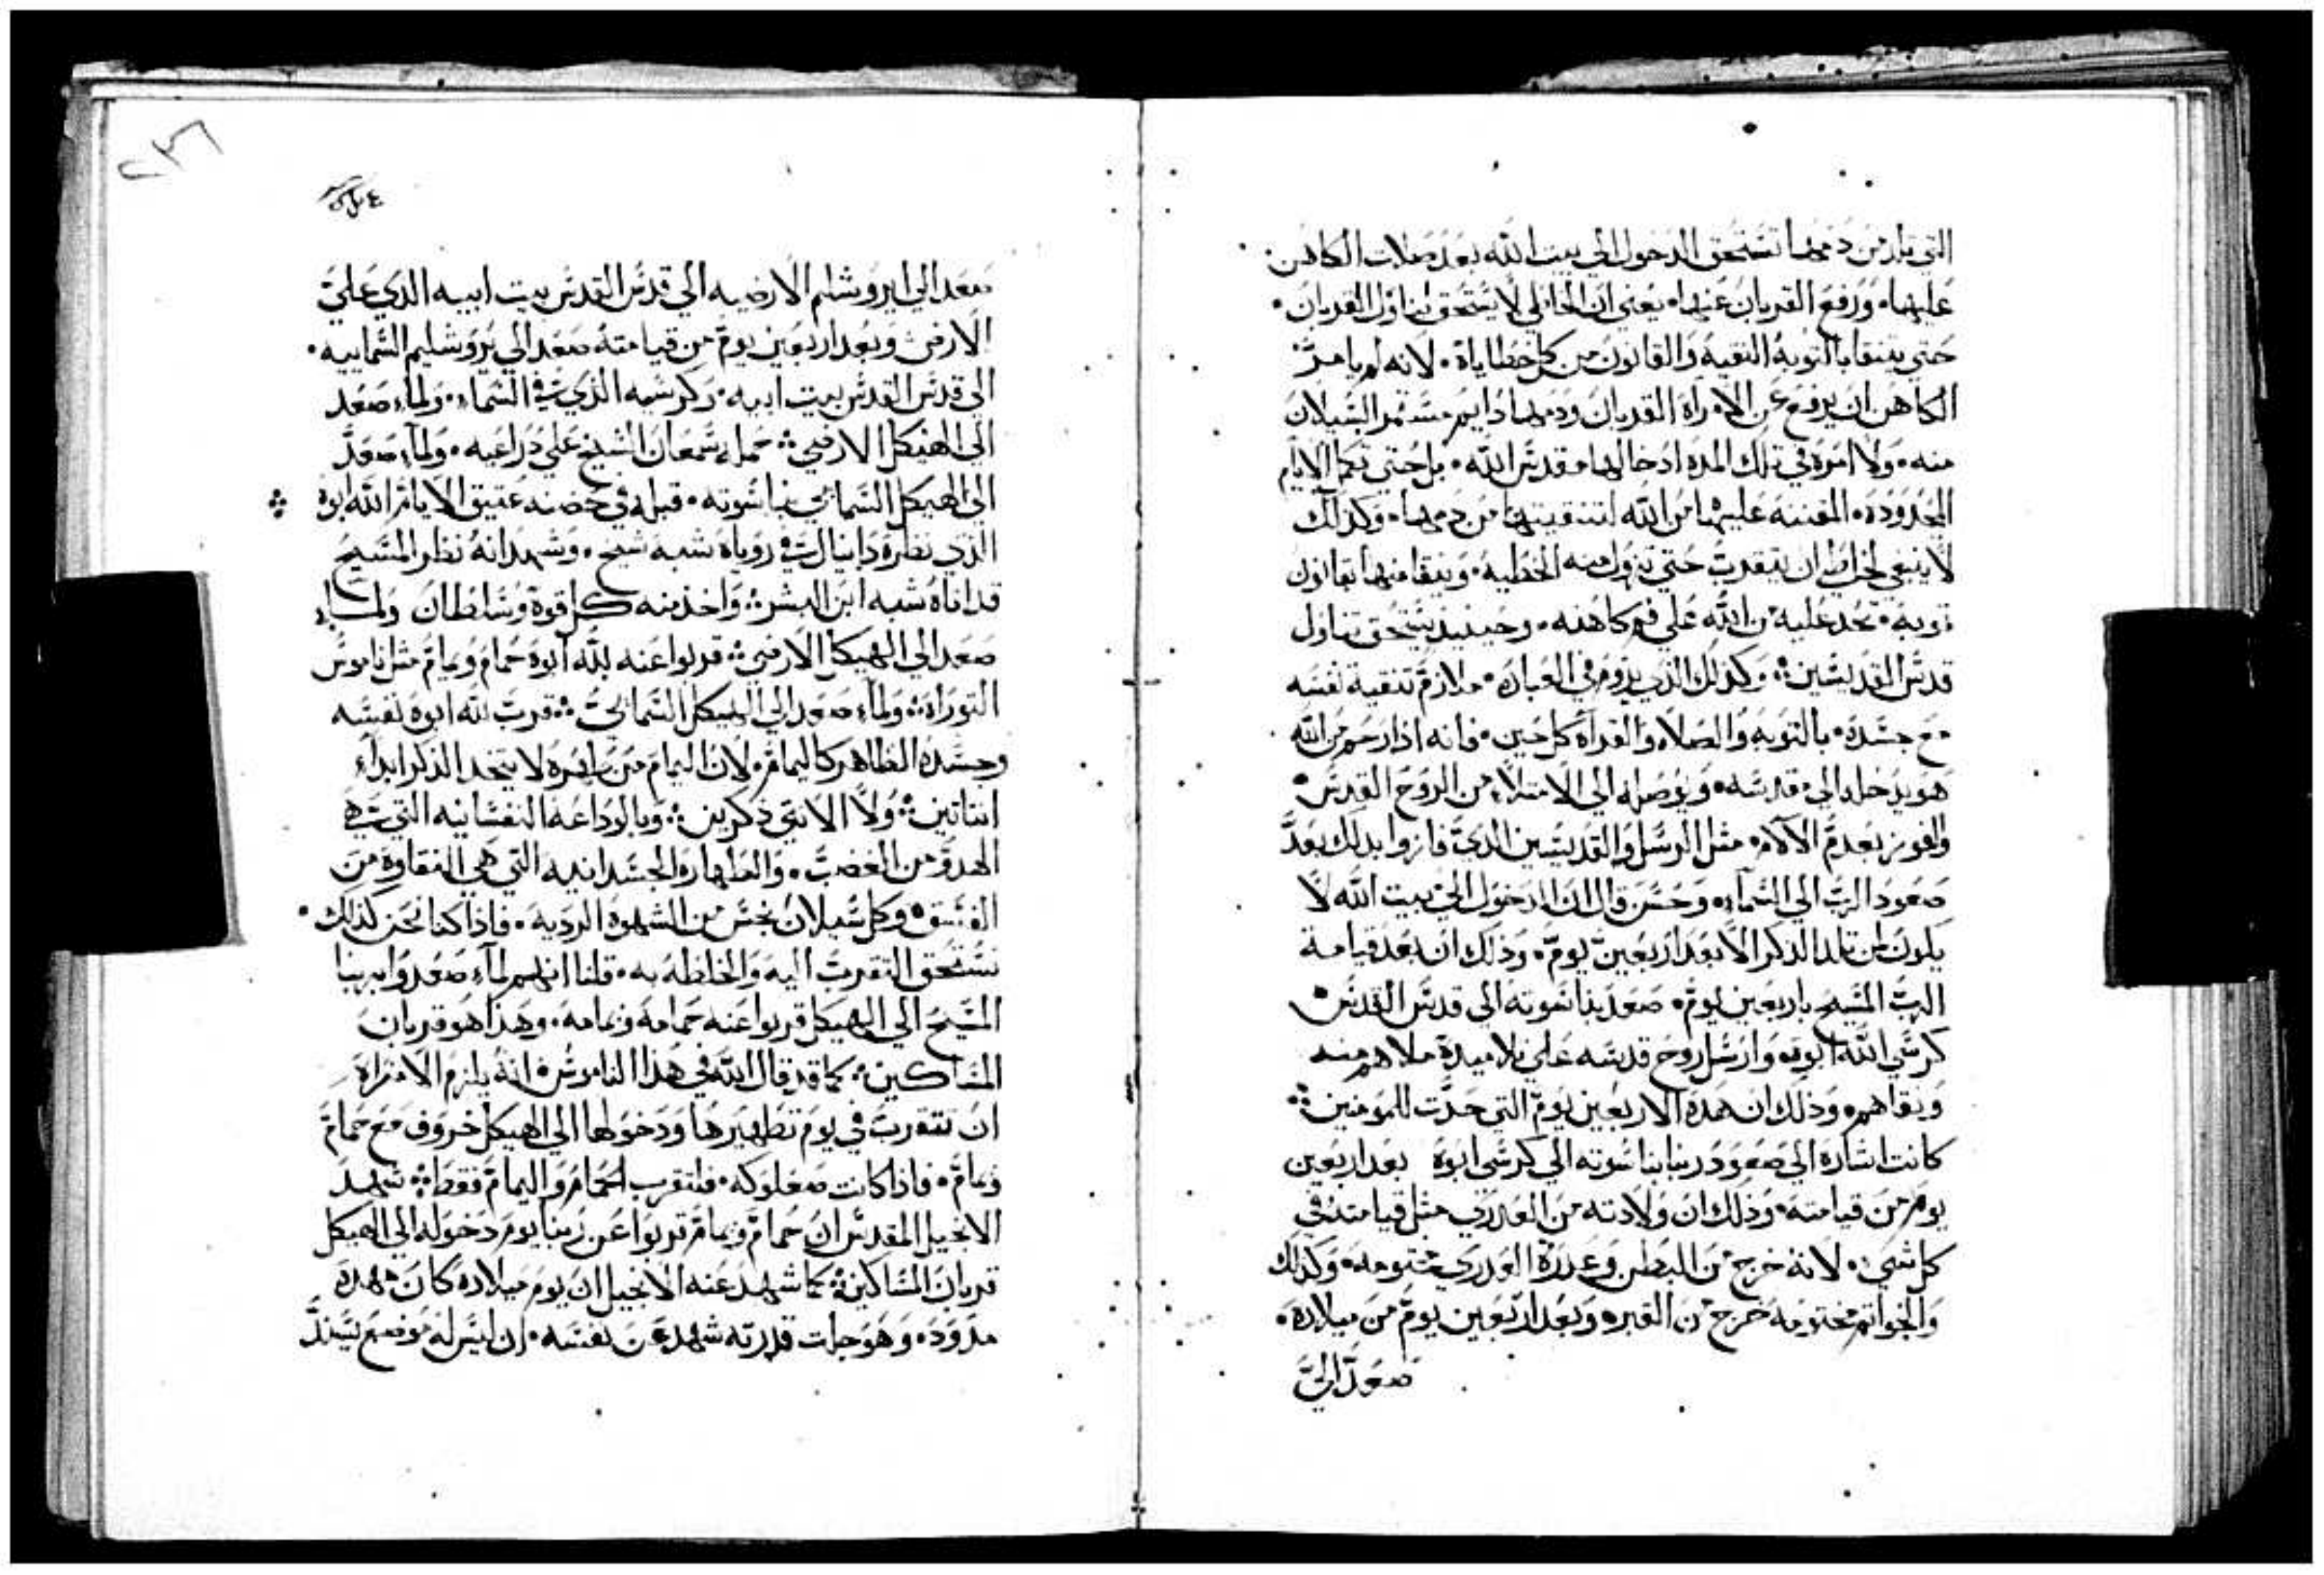 التي تلد من دمها تستحق الدخول الي بيت الله بعد صلات الكاهن
عليها. ورفع القربان عنها. يعني ان الخاطي لا يستحق تناول القربان.
حتي يتنقا بالتوبه النقيه والقانون من كل خطاياة. لانه لم يامر
الكاهن ان يرفع عن الامراة القربان ودمها دايم مستمر السيلان
منه. ولا امره في تلك المده ادخالها قدس الله. بل حتي تكمل الايام
المحدوده. المقننه عليها من الله لتنقيتها من دمها. وكذلك
لا ينبغي لخاطي ان يتقرب حتي تزول منه الخطيه. ويتقا منها بقانون
توبه. تحد عليه من الله علي فم كاهنه. وحينيذ يستحق تناول
قدس القديسين: وكذلك الذي يدوم في العباده. ملازم تنقية نفسه
مع جسده. بالتوبه والصلاه والقراة كل حين. فانه اذا رحم من الله
هو يدخله الي قدسه. ويوصله الي الامتلاء من الروح القدس.
والفوز بعدم الالام. مثل الرسل والقديسين الدي فازوا بدلك بعد
صعود الرب الي السماء. وحسن قال ان الدخول الي بيت الله لا
يكون لمن تلد الذكر الا بعد اربعين يوم. وذلك ان بعد قيامة
الرب المسيح باربعين يوم. صعد بناسوته الي قدس القدس.
كرسي الله ابوه. وارسل روح قدسه علي تلاميدة ملاهم منه
ونقاهم. وذلك ان هذه الاربعين يوم التي حدت للمومنين:
كانت اشارة الي صعود ربنا بناسوته الي كرسي ابوة بعد اربعين
يوم من قيامته. وذلك ان ولادته من العدري مثل قيامته في
كل شي. لانه خرج من البطن وعدرة العدري مختومه. وكدلك
والخواتم مختومه خرج من القبر. وبعد اربعين يوم من ميلاده.
صعد الي
٢٣٦
صعد الي ايروشليم الارضيه الي قدس القدس بيت ابيه الدي علي
الارض وبعد اربعين يوم من قيامته صعد الي يروشليم السماييه.
الي قدس القدس بيت ابيه. وكرسيه الذي في السماء. ولما صعد
الي الهيكل الارضي: حمله سمعان الشيخ علي دراعيه. ولما صعد
الي الهيكل السمايي بناسوته. قبله في حضنه عتيق الايام الله ابوه
الذي نظرة دانيال في روياه شبه شيخ. وشهد انه نظر المسيح
قد اتاه شبه ابن البشر: واخذ منه كل قوة وسلطان ولما
صعد الي الهيكل الارضي: قربوا عنه لله ابوة حمام ويمام مثل ناموس
التوراه: ولما صعد الي الهيكل السمايي: قرب لله ابوه نفسه
وجسده الطاهر كاليمام. لان اليمام من لا يتخد الذكر ابداً
انتاتين: ولا الانتي ذكرين: وبالوداعه النفسانيه التي هي
الهدو من الغضب. والطهاره الجسدانيه التي هي النقاوة من
الفسق. وكل سيلان نجس من الشهوة الرديه. فاذا كنا نحن كذلك.
نستحق التقرب اليه والخلطه به. قلنا انهم لما صعدوا بربنا
المسيح الي الهيكل قربوا عنه حمامه ويمامه. وهذا هو قربان
المساكين: كما قد قال الله في هذا الناموس: انه يلزم الامراة
ان تتقرب في يوم تطهيرها ودخولها الي الهيكل خروف مع حمام
ويمام. فاذا كانت صعلوكه. فلتقرب الحمام واليمام فقط: شهد
الانجيل المقدس ان حمام ويمام قربوا عن ربنا يوم دخوله الي الهيكل
قربان المساكين: كما شهد عنه الانجيل ان يوم ميلاده كان مهده
مدود. وهو جلت قدرته شهد عن نفسه. ان ليس له موضع يسند